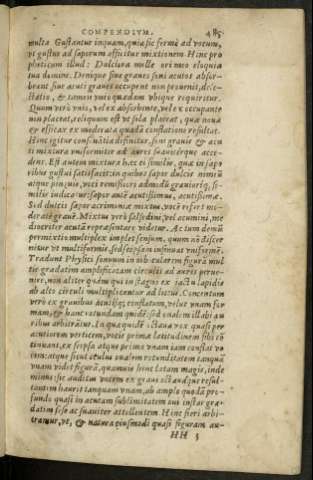 COMPENDIVM. 485
multa Gustantur inquam, quia sic fermè ad votum,
vt gustus ad saporum afficitur mixtionem. Hinc pro
pheticum illud: Dulciora melle ori meo eloquia
tua domine. Denique siue graues sint acutos absor-
beant siue acuti graues occupent non poterit, dele-
ctatio, & tamen vnio quædam vbique requiritur.
Quum verò vnis, vel ex absorbente, vel ex occupante
non placeat, reliquum est vt sola placeat, quæ noua
& efficax ex moderata quadã conflatione resultat.
Hinc igitur consonãtia definitur, soni grauis & acu
ti mixtura vniformiter ad aures suauiterque acce-
dens. Est autem mixtura hæc ei similis, quæ in sapo
ribus gustui satisfacit: in quibus sapor dulcis nimiũ
atque pinguis, voci remissiori admodũ grauioriq, si-
milis iudicatur: sapor autẽ acutissimus, acutissimæ.
Sed dulcis sapor acrimoniæ mixtus, vocẽ refert mo-
deratè grauẽ. Mixtus verò salsedini, vel acumini, me
diocriter acutã repræsentare videtur. Actum demũ
permixtio multiplex implet sensum, quum nõ discer
nitur vt multiformis, sed sepsam insinuat vniformẽ.
Tradunt Physici sonum in orbicularem figurã mul
tis gradatim amplificatam circulis ad aures perue-
nire, non aliter quàm qui in stagno ex iactu lapidis
ab alto circuli multiplicentur ad latus. Concentum
verò ex grauibus acutisq; conflatum, velut vnam for
mam, & hanc rotundam quidẽ, sed oualem illabi au
ribus arbitrãtur. In qua quidẽ octaua vox quasi per
acutiorem verticem, vocis primæ latitudinem sibi cõ
tinuant, ex seipsa atque prima vnam iam conflat vo
cem: atque sicut oculus oualem rotunditatem tanquã
vnam videt figurã, quamuis hinc latam magis, inde
minus: sic auditus vocem ex graui acutaque resul-
tantem haurit tanquam vnam, ab ampla quodã pro
fundo quasi in acutam sublimitatem sui instar gra-
datim sese ac suauiter attollentem. Hinc fieri arbi-
tramur, vt, & natura eiusmodi quasi figuram au-
HH 3